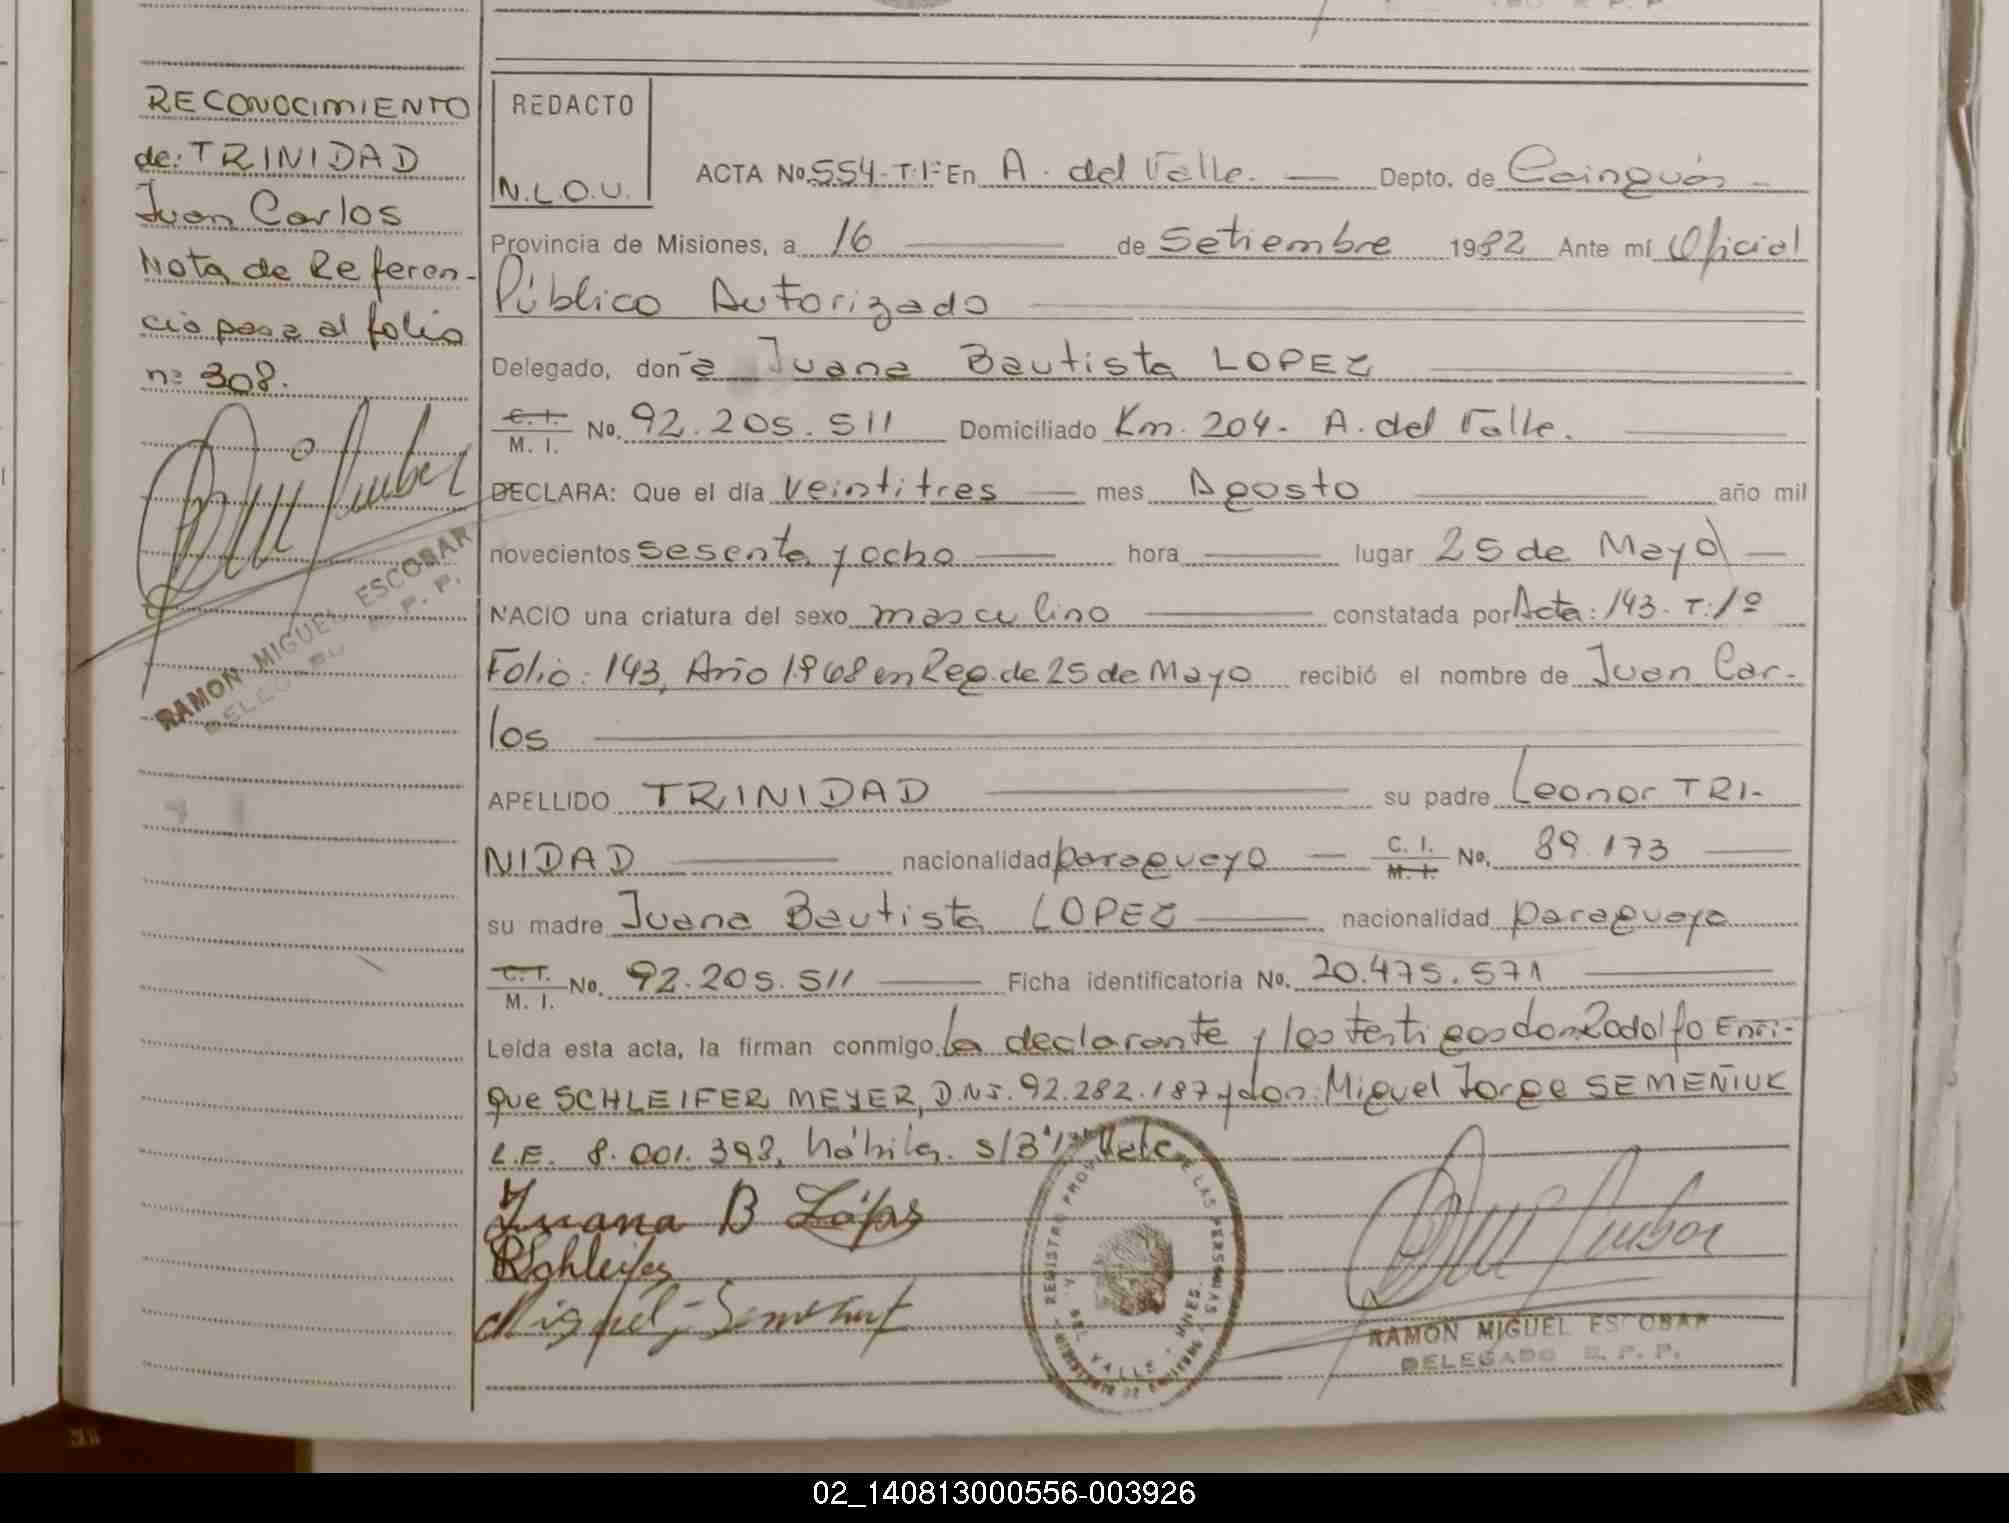 RECONOCIMIENTO
de: TRINIDAD
Juan Carlos
Nota de Referen-
cia pasa al folio
nº 308.
RAMON MIGUEL ESCOBAR
REDACTO
N.L.O.U.
ACTA No. 554-T.1º En A. del Valle. — Depto. de Cainguás -
Provincia de Misiones, a 16 — de Setiembre 1982 Ante mí Oficial
Público Autorizado
Delegado, don ̃a Juana Bautista LOPEZ
C. I.
M. I. No. 92.205.511 Domiciliado Km. 204- A. del Valle.
DECLARA: Que el día veintitres — mes Agosto — año mil
novecientos sesenta y ocho — hora — lugar 25 de Mayo —
NACIO una criatura del sexo masculino — constatada por Acta: 143- T: 1º
Folio: 143, Año 1968 en Reg. de 25 de Mayo recibió el nombre de Juan Car-
los
APELLIDO TRINIDAD — su padre Leonor TRI-
NIDAD — nacionalidad paraguaya — C. I. M. I. No. 89.173
su madre Juana Bautista LOPEZ — nacionalidad paraguaya
C. I.
M. I. No. 92.205.511 — Ficha identificatoria No. 20.475.571
Leída esta acta, la firman conmigo la declarante y los testigos don: Rodolfo Enri-
que SCHLEIFER MEYER, D.N.I. 92.282.187 y don: Miguel Jorge SEMEÑIUK
L.E. 8.001.393, hábiles.
Juana B López
RSchleifer
Miguel J. Semeniuk
REGISTRO PROVINCIAL DE LAS PERSONAS
DEL VALLE - MNES.
RAMON MIGUEL ESCOBAR
DELEGADO R. P. P.
02_140813000556-003926